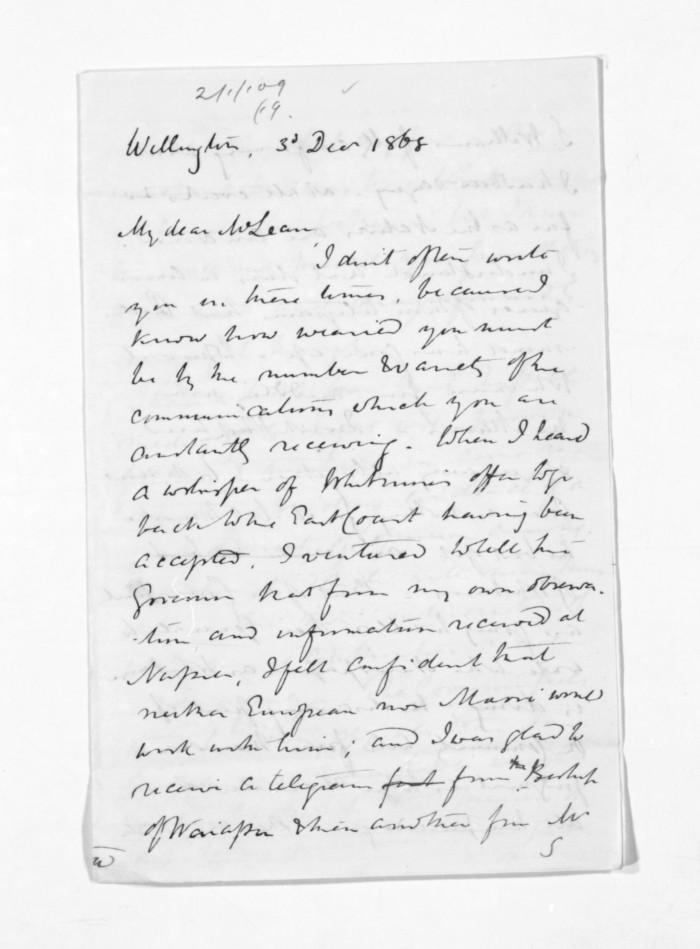 21/1/109
69.
Wellington, 3d Decr 1868
My dear McLean,
I don't often write
you in these times, because I
know how wearied you must
be by the number & variety of the
communications which you are
constantly receiving. When I heard
a whisper of Whitmore's offer to go
back to the East Coast having been
accepted, I ventured to tell the
Governor that from my own observa-
-tion and information received at
Napier, I felt confident that
neither European nor Maori would
work with him; and I was glad to
receive a telegram from the Bishop
of Waiapu & then another from Mr
S